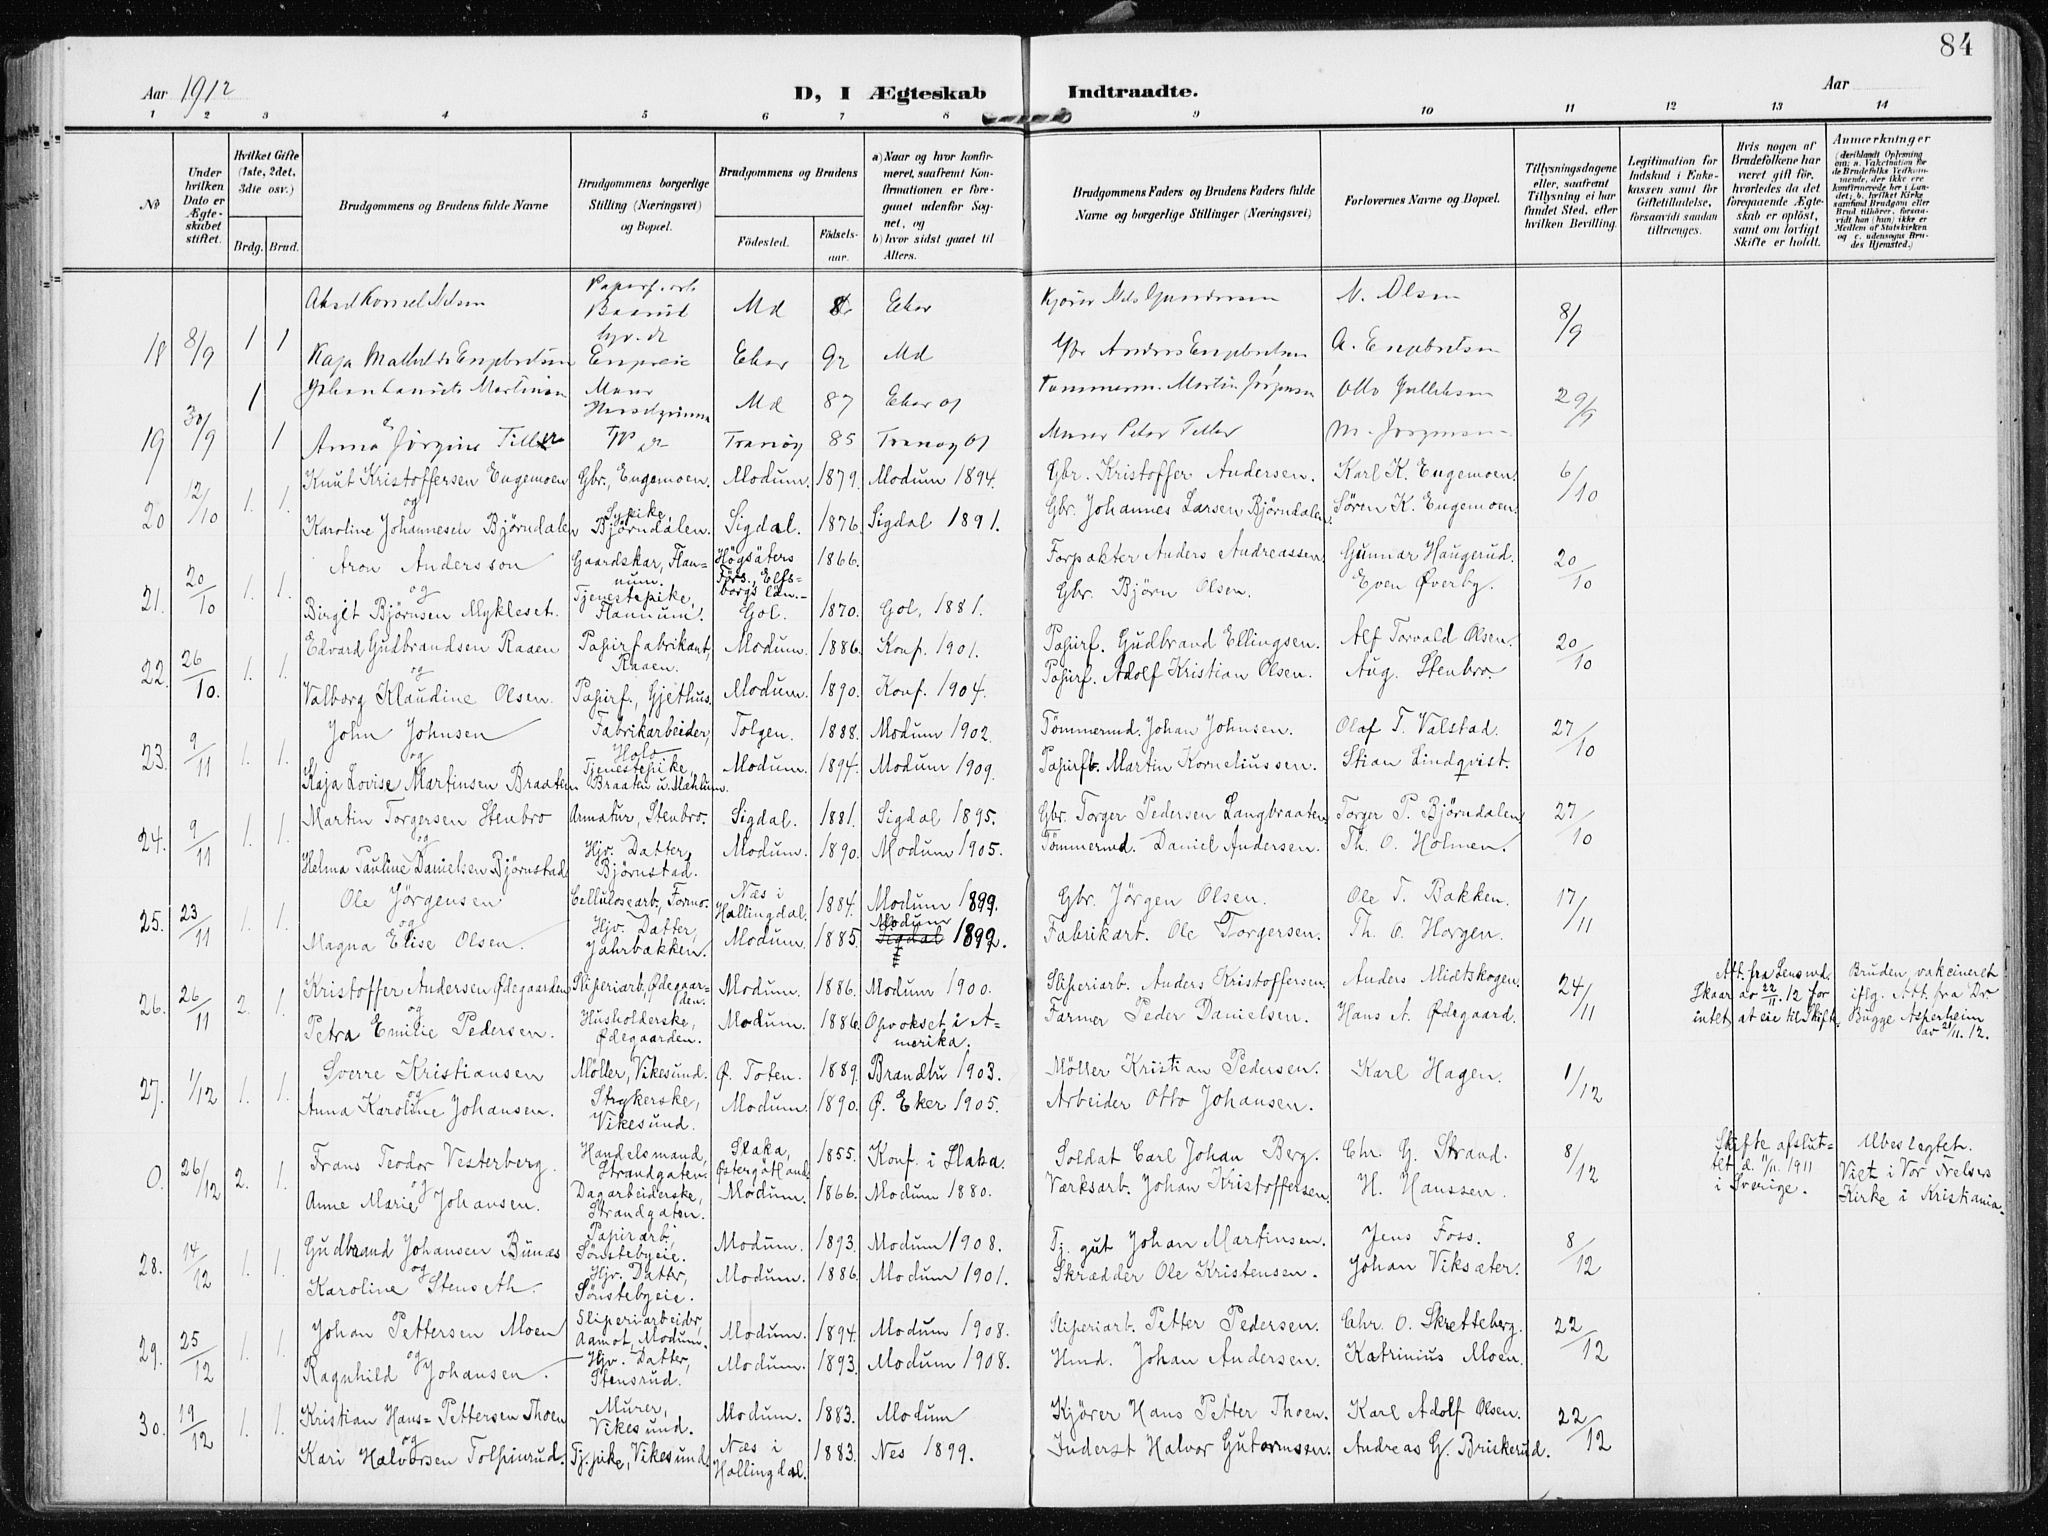 84
Aar 1912
D, I Ægteskab Indtraadte.
Aar
1 2 3 4 5 6 7 8 9 10 11 12 13 14
No
Under hvilken Dato er Ægteskabet stiftet.
Hvilket Gifte (1ste, 2det, 3die osv.)
Brdg. Brud.
Brudgommens og Brudens fulde Navne
Brudgommens borgerlige Stilling (Næringsvei) og Bopæl.
Brudgommens og Brudens
Födested.
Födselsaar.
a) Naar og hvor konfirmeret, saafremt Konfirmationen er foregaaet udenfor Sognet, og
b) hvor sidst gaaet til Alters.
Brudgommens Faders og Brudens Faders fulde Navne og borgerlige Stillinger (Næringsvei)
Forlovernes Navne og Bopæl.
Tillysningsdagene eller, saafremt Tillysning ei har fundet Sted, efter hvilken Bevilling.
Legitimation for Indskud i Enkekassen samt for Giftetilladelse, forsaavidt saadan tiltrænges.
Hvis nogen af Brudefolkene har været gift för, hvorledes da det foregaaende Ægteskab er oplöst, samt om lovligt Skifte er holdt.
Anmærkninger
(deriblandt Oplysning om: a. Vakcination for de Brudefolks Vedkommende, der ikke ere konfirmerede her i Landet; b. hvilket Kirkesamfund Brudgom eller Brud tilhörer, forsaavidt han (hun) ikke er Medlem af Statskirken og c. udensogns Brudes Hjemsted.)
18 8/9 1 1 Aksel Kornel Nilsen Md Eker Kjører Nils Gundersen N. Olsen 8/9
Kaja Mathilde Engebretsen Engereie Eker 92 Md Gbr Andres Engebretsen A. Engebretsen
19 30/9 1 1 Johan Lauritz Martinsen Murer Md 87 Eker 01 Tømmerm. Martin Jørgensen Otto Gulliksen 29/9
Anna Jørgine Tiller Tranøy 85 Tranøy 01 Murer Peter Teller M. Jørgensen
20 12/10 1. 1. Knut Kristoffersen Engemoen Gbr., Engemoen. Modum. 1879. Modum 1894. Gbr. Kristoffer Andersen. Karl K. Engemoen. 6/10
og
Karoline Johannesen Bjørndalen Sypike Bjørndalen. Sigdal. 1876. Sigdal 1891. Gbr. Johannes Larsen Bjørndalen. Søren K. Engemoen.
21. 20/10 1. 1. Aron Andersson Gaardskar, Flannum. Högsäters Førs., Elfsborgs län. 1866. Forpakter Anders Andreassen Gunnar Haugerud. 20/10
og
Birgit Bjørnsen Mykleset. Tjenestepike, Flannum. Gol. 1870. Gol, 1881. Gbr. Bjørn Olsen. Even Øverby.
22. 26/10. 1. 1. Edvard Gudbrandsen Raaen Papirfabrikant, Raaen. Modum. 1886. Konf. 1901. Papirf. Gudbrand Ellingsen. Alf Torvald Olsen. 20/10
og
Valborg Klaudine Olsen. Papirf., Gjethus. Modum. 1890. Konf. 1904. Papirf. Adolf Kristian Olsen. Aug. Stenbro.
23. 9/11 1. 1. John Johnsen Fabrikarbeider, Holo Tolgen. 1888. Modum 1902. Tømmermd. Johan Johnsen. Olaf T. Valstad. 27/10
og
Kaja Lovise Martinsen Braaten Tjenestepike Braaten u. Mæhlum. Modum. 1894. Modum 1909. Papirfb. Martin Korneliussen. Stian Lindqvist.
24. 9/11 1. 1. Martin Torgersen Stenbro Armatur, Stenbro. Sigdal. 1881. Sigdal 1895. Gbr. Torger Pedersen Langbraaten Torger P. Bjørndalen 27/10
og
Helma Pauline Danielsen Bjørnstad. Hjv. Datter, Bjørnstad. Modum. 1890. Modum 1905. Tømmermd. Daniel Andersen. Th. O. Holmen.
25. 23/11 1. 1. Ole Jørgensen Cellulosearb, Formo. Næs i Hallingdal. 1884. Modum 1899. Gbr. Jørgen Olsen. Ole T. Bakken. 17/11
og
Magna Elise Olsen. Hjv. Datter, Jahrbakken. Modum. 1885. Modum Sigdal 1899. Fabrikart. Ole Torgersen. Th. O. Horgen.
26. 26/11 2. 1. Kristoffer Andersen Ødegaarden Sliperiarb, Ødegaarden. Modum. 1886. Modum 1900. Sliperiarb. Anders Kristoffersen. Anders Midtskogen. 24/11 Att. fra Lensmd. Skaar av 22/11. 12 for intet at eie til Skifte. Bruden vakcineret iflg. Att. fra Dr Bugge Asperheim av 21/11. 12.
og
Petra Emilie Pedersen. Husholderske, Ødegaarden. Modum. 1886. Opvokset i Amerika. Farmer Peder Danielsen. Hans A. Ødegaard.
27. 1/12 1. 1. Sverre Kristiansen Møller, Vikesund. Ø. Toten. 1889. Brandbu 1903. Møller Kristian Pedersen. Karl Hagen. 1/12
og
Anna Karoline Johansen. Strykerske, Vikesund. Modum. 1890. Ø. Eker 1905. Arbeider Otto Johansen.
0. 26/12 2. 1. Frans Teodor Vesterberg. Handelsmand, Strandgaten. Slaka, Østergøtland 1855. Konf. i Slaka. Soldat Carl Johan Berg. Chr. G. Strand. 8/12 Skifte afsluttet d. 1/11. 1911 i Sverige. Ubeslegtet. Viet i Vor Frelsers Kirke i Kristiania.
og
Anne Marie Johansen. Dagarbeiderske, Strandgaten. Modum. 1866. Modum 1880. Værksarb. Johan Kristoffersen. H. Hanssen.
28. 14/12 1. 1. Gudbrand Johansen Bunæs Papirarb, Sønstebyeie. Modum. 1893. Modum 1908. Tj. gut Johan Martinsen. Jens Foss. 8/12
og
Karoline Stenseth. Hjv. Datter, Sønstebyeie. Modum. 1886. Modum 1901. Skrædder Ole Kristensen. Johan Viksæter.
29. 25/12 1. 1. Johan Pettersen Moen Sliperiarbeider, Aamot, Modum. Modum. 1894. Modum 1908. Sliperiarb. Petter Pedersen. Chr. O. Skretteberg. 22/12
og
Ragnhild Johansen. Hjv. Datter, Stensrud. Modum. 1893. Modum 1908. Hmd. Johan Andersen. Katrinius Moen.
30. 19/12 1. 1. Kristian Hans=Pettersen Thoen Murer, Vikesund. Modum. 1883. Modum Kjører Hans Petter Thoen. Karl Adolf Olsen. 22/12
og
Kari Halvorsen Tolpinrud. Tj. pike, Vikesund. Næs i Hallingdal. 1883. Nes 1899. Inderst Halvor Gutormsen. Andreas G. Briskerud.